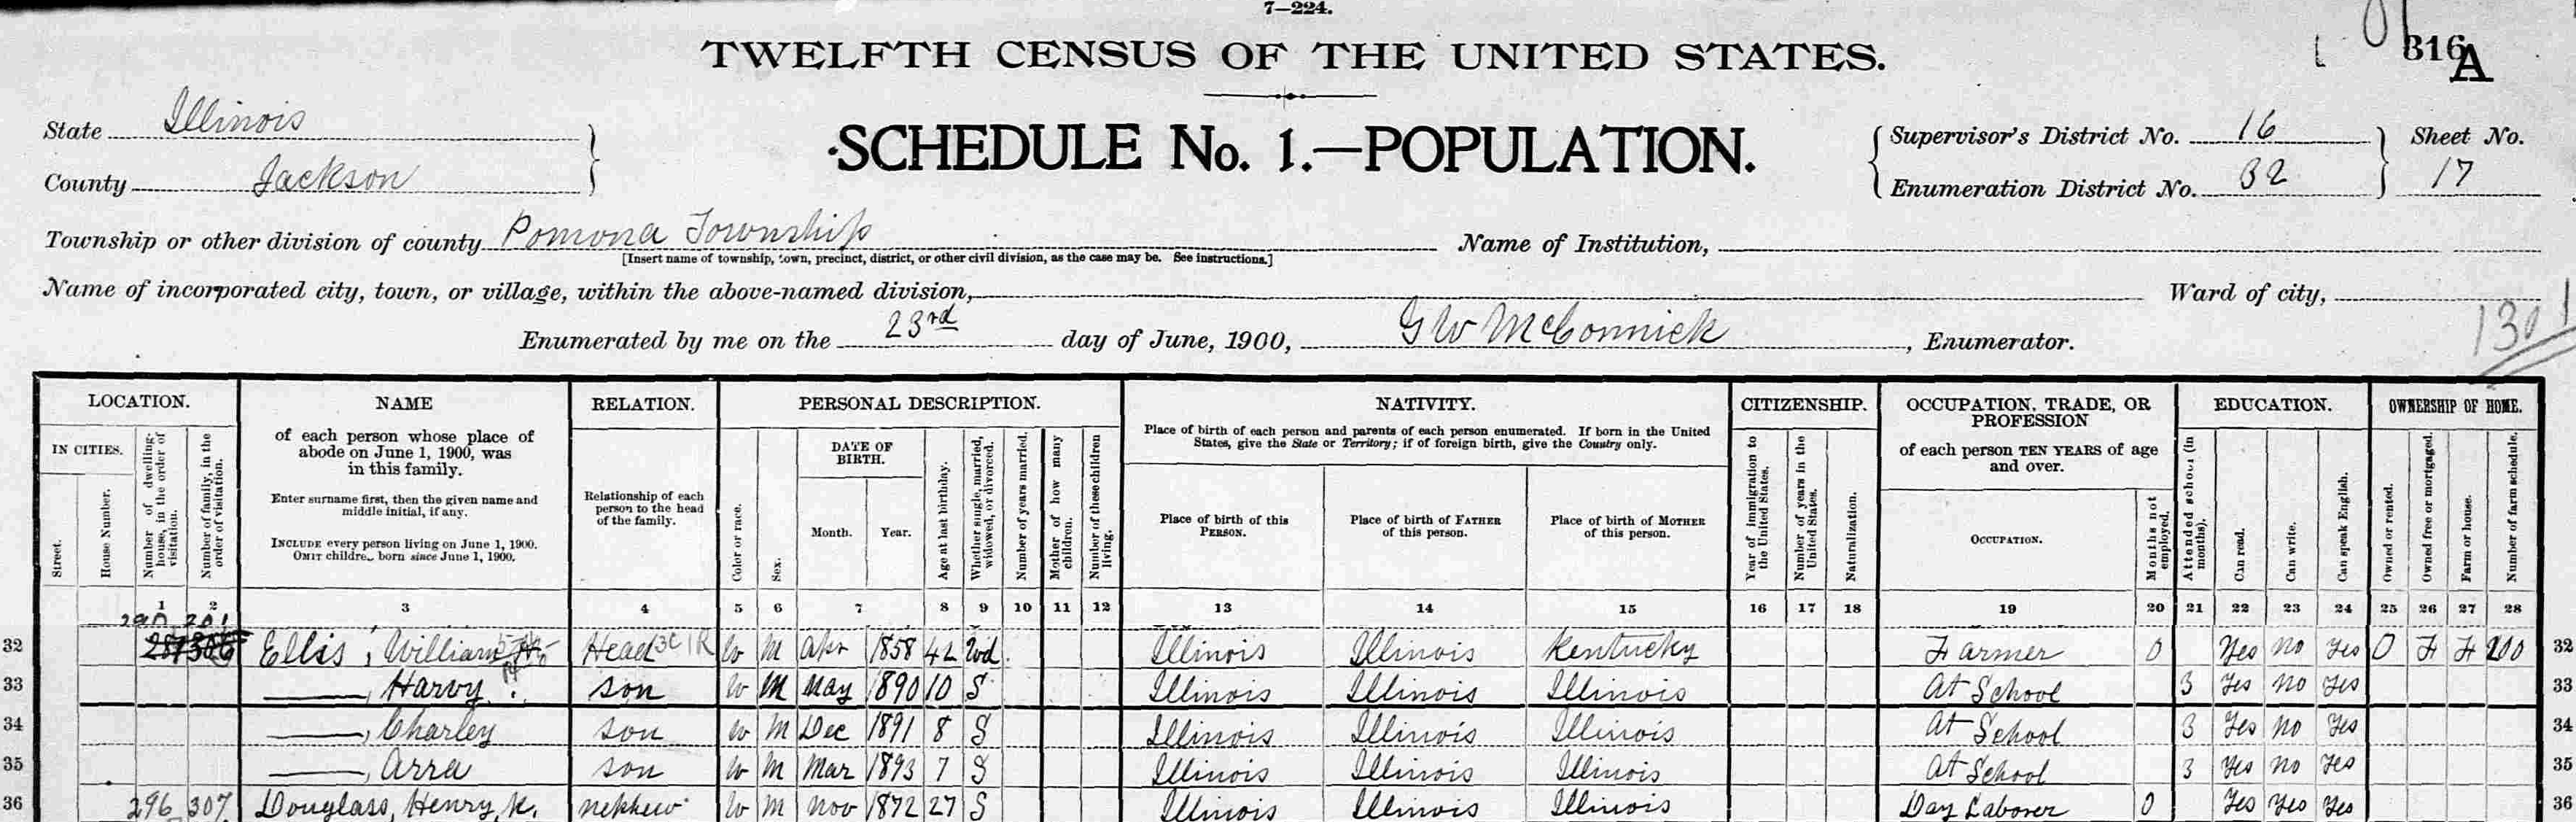 7—224.
TWELFTH CENSUS OF THE UNITED STATES.
316
A
State Illinois
County Jackson
SCHEDULE No. 1.—POPULATION.
Supervisor's District No. 16
Enumeration District No. 32
Sheet No.
17
Township or other division of county Pomona Township
Name of Institution,
[Insert name of township, town, precinct, district, or other civil division, as the case may be. See instructions.]
Name of incorporated city, town, or village, within the above-named division,
Ward of city,
1301
Enumerated by me on the 23rd day of June, 1900, G W McConnick, Enumerator.
LOCATION.
IN CITIES.
Street.
House Number.
Number of dwelling-house, in the order of visitation.
Number of family, in the order of visitation.
NAME
of each person whose place of
abode on June 1, 1900, was
in this family.
Enter surname first, then the given name and
middle initial, if any.
INCLUDE every person living on June 1, 1900.
OMIT children born since June 1, 1900.
RELATION.
Relationship of each
person to the head
of the family.
PERSONAL DESCRIPTION.
Color or race.
Sex.
DATE OF
BIRTH.
Month.
Year.
Age at last birthday.
Whether single, married, widowed, or divorced.
Number of years married.
Mother of how many children.
Number of these children living.
NATIVITY.
Place of birth of each person and parents of each person enumerated. If born in the United
States, give the State or Territory; if of foreign birth, give the Country only.
Place of birth of this
PERSON.
Place of birth of FATHER
of this person.
Place of birth of MOTHER
of this person.
CITIZENSHIP.
Year of immigration to the United States.
Number of years in the United States.
Naturalization.
OCCUPATION, TRADE, OR
PROFESSION
of each person TEN YEARS of age
and over.
OCCUPATION.
Months not employed.
EDUCATION.
Attended school (in months).
Can read.
Can write.
Can speak English.
OWNERSHIP OF HOME.
Owned or rented.
Owned free or mortgaged.
Farm or house.
Number of farm schedule.
1 2 3 4 5 6 7 8 9 10 11 12 13 14 15 16 17 18 19 20 21 22 23 24 25 26 27 28
32 Ellis, William Head W M Apr 1858 42 Wd Illinois Illinois Kentucky Farmer 0 Yes No Yes O F F 200 32
33 , Harvy son W M May 1890 10 S Illinois Illinois Illinois At School 3 Yes No Yes 33
34 , Charley son W M Dec 1891 8 S Illinois Illinois Illinois At School 3 Yes No Yes 34
35 , Arra son W M Mar 1893 7 S Illinois Illinois Illinois At School 3 Yes No Yes 35
36 296 307 Douglass, Henry, K. nephew W M Nov 1872 27 S Illinois Illinois Illinois Day Laborer 0 Yes Yes Yes 36